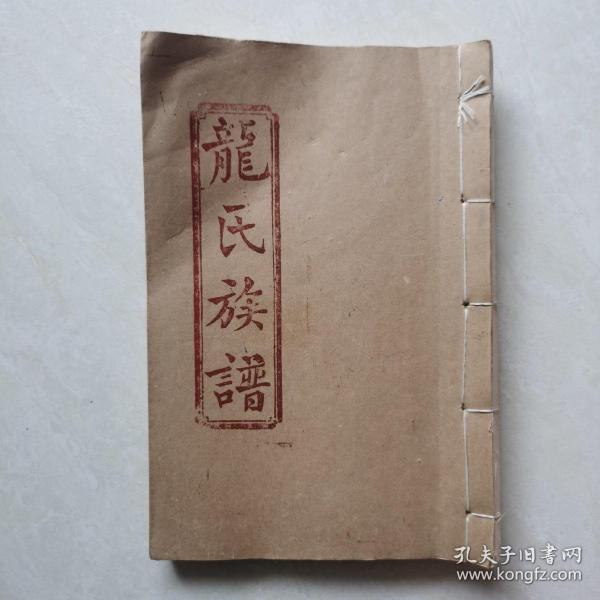 龍氏族譜
孔夫子旧书网
www.kongfz.com